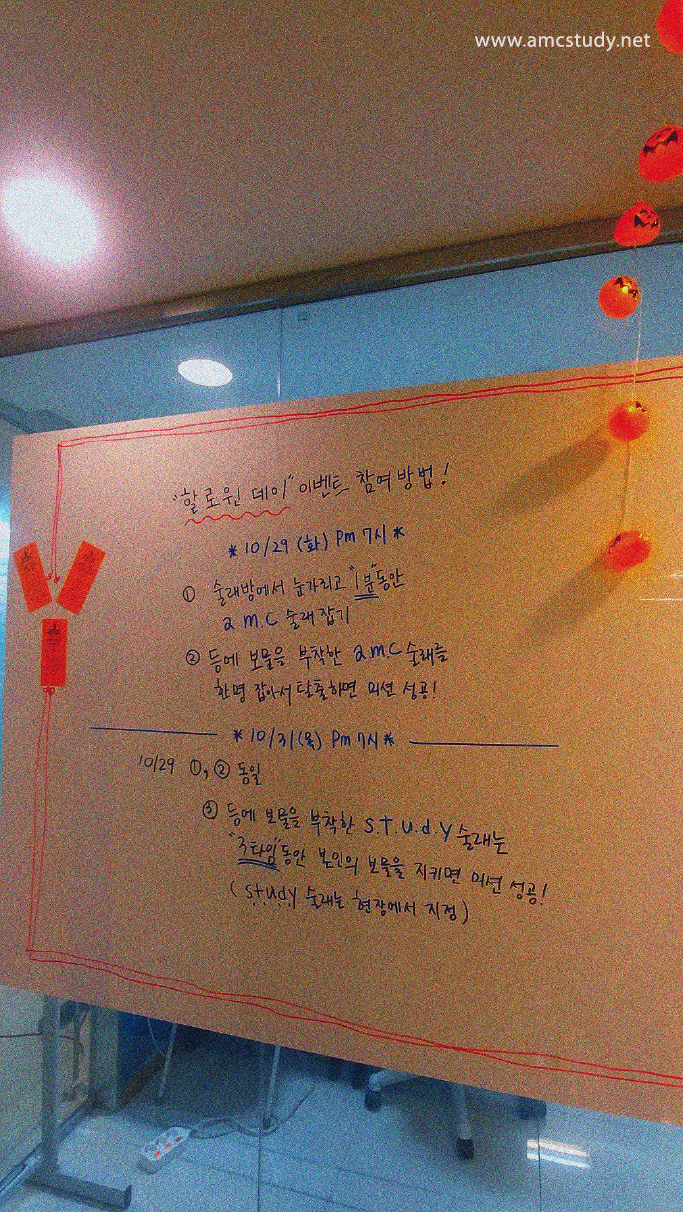 www.amcstudy.net
"할로윈 데이" 이벤트 참여방법!
* 10/29 (화) Pm 7시 *
① 술래방에서 눈가리고 "1분"동안
a.m.c 술래잡기
② 등에 보물을 부착한 a.m.c 술래를
한명 잡아서 탈출하면 미션 성공!
* 10/31(목) Pm 7시 *
10/29 ①, ② 동일
③ 등에 보물을 부착한 s.t.u.d.y 술래는
"3타임"동안 본인의 보물을 지키면 미션 성공!
(study 술래는 현장에서 지정)